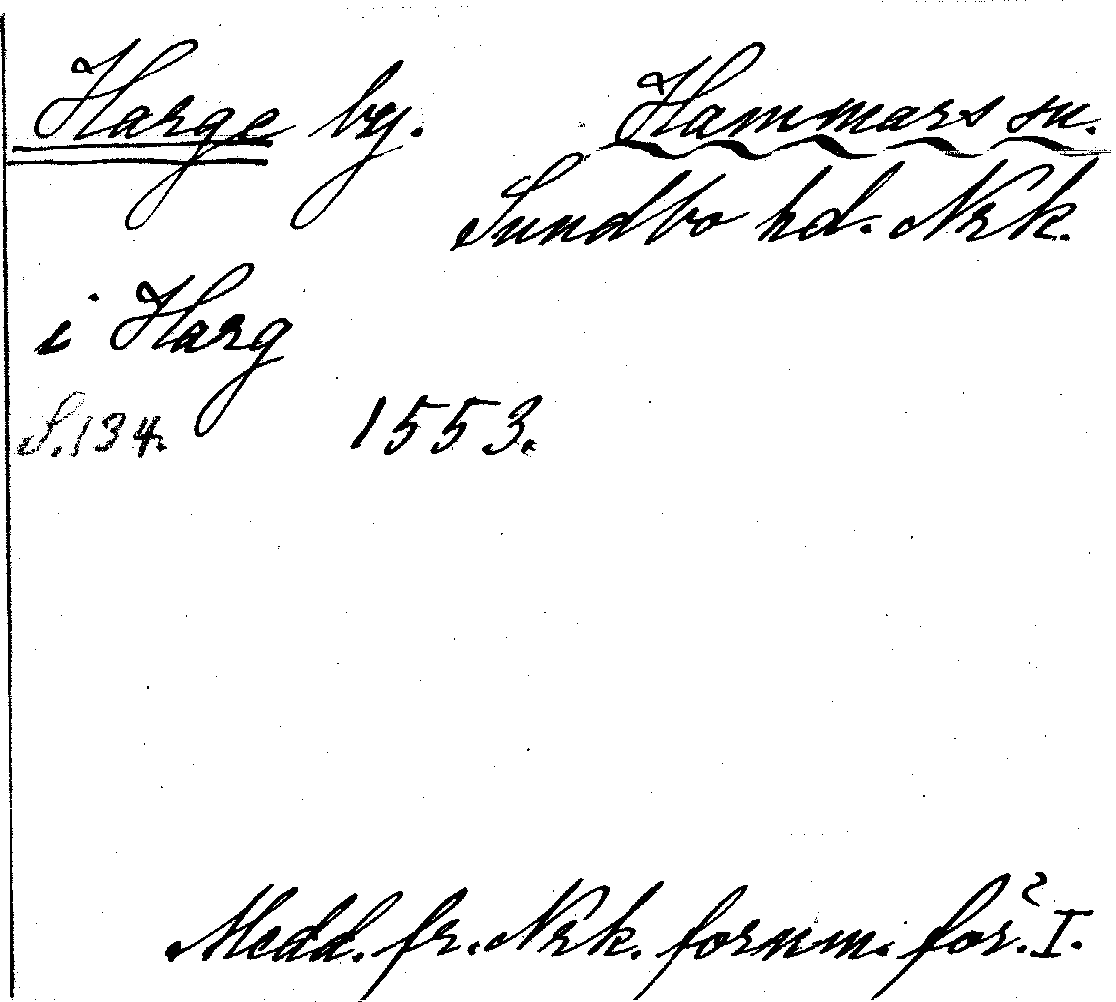 Harge by. Hammars sn.
Sundbo hd. Nrk.
i Harg
S. 134. 1553.
Medd. fr. Nrk. fornm. för. I.